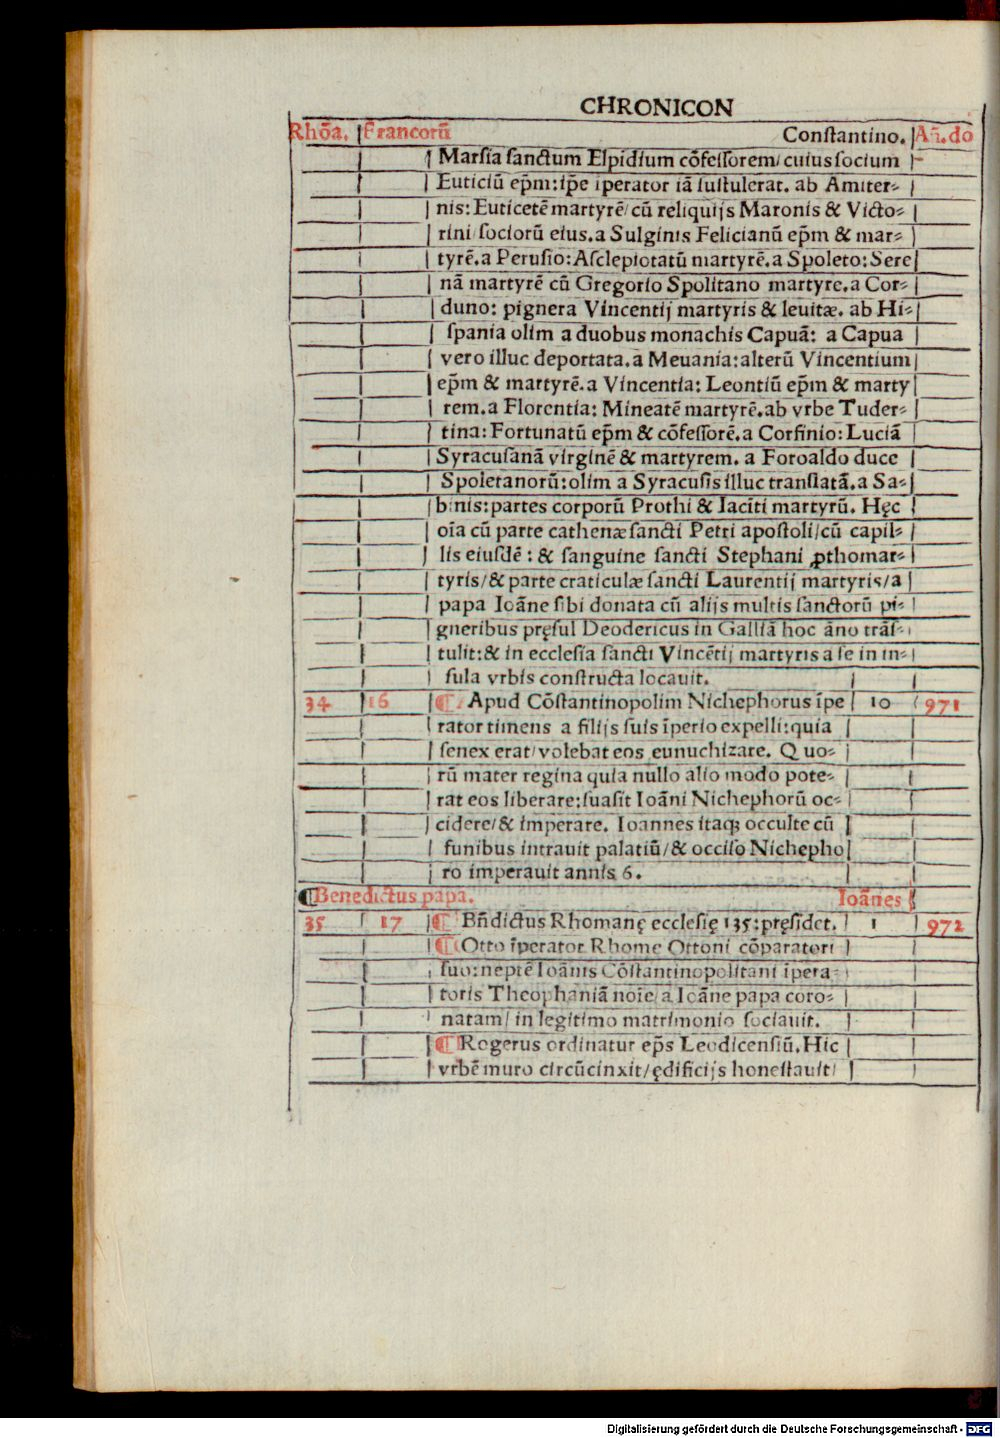 CHRONICON
Rhõa. Francorũ Constantino. Añ.do
Marsia sanctum Elpidium cõfessorem/cuius socium
Euticiũ ep̃m:ip̃e iperator iã sustulerat. ab Amiter-
nis:Euticetẽ martyrẽ/cũ reliquijs Maronis & Victo-
rini/sociorũ eius.a Sulginis Felicianũ ep̃m & mar-
tyrẽ.a Perusio:Asclepiotatũ martyrẽ.a Spoleto:Sere
nã martyrẽ cũ Gregorio Spolitano martyre.a Cor-
duno: pignera Vincentij martyris & leuitæ. ab Hi-
spania olim a duobus monachis Capuã: a Capua
vero illuc deportata.a Meuania:alterũ Vincentium
ep̃m & martyrẽ.a Vincentia: Leontiũ ep̃m & marty
rem.a Florentia: Mineatẽ martyrẽ.ab vrbe Tuder-
tina:Fortunatũ ep̃m & cõfessorẽ.a Corfinio:Luciã
Syracusanã virginẽ & martyrem. a Foroaldo duce
Spoletanorũ:olim a Syracusis illuc translatã.a Sa-
binis:partes corporũ Prothi & Iacīti martyrũ. Hęc
oĩa cũ parte cathenæ sancti Petri apostoli/cũ capil-
lis eiusdẽ : & sanguine sancti Stephani ꝓthomar-
tyris/& parte craticulæ sancti Laurentij martyris/a
papa Ioãne sibi donata cũ alijs multis sanctorũ pi-
gneribus pręsul Deodericus in Galliã hoc ãno trãs-
tulit:& in ecclesia sancti Vincẽtij martyris a se in in-
sula vrbis constructa locauit.
34 16 ¶ Apud Cõstantinopolim Nichephorus īpe 10 971
rator timens a filijs suis īperio expelli:quia
senex erat/volebat eos eunuchizare. Quo-
rũ mater regina quia nullo alio modo pote-
rat eos liberare:suasit Ioãni Nichephorũ oc-
cidere/& imperare. Ioannes itaqꝫ occulte cũ
funibus intrauit palatiũ/& occiso Nichepho
ro imperauit annis 6.
¶Benedictus papa. Ioãnes
35 17 ¶ Bñdictus Rhomanę ecclesię 135:pręsidet. 1 972
¶Otto īperator Rhome Ottoni cõparatori
suo:neptẽ Ioãnis Cõstantinopolitani īpera-
toris Theophaniã noĩe/a Ioãne papa coro-
natam/in legitimo matrimonio sociauit.
¶Rogerus ordinatur ep̃s Leodicensiũ.Hic
vrbẽ muro circũcinxit/ędificijs honestauit/
Digitalisierung gefördert durch die Deutsche Forschungsgemeinschaft - DFG